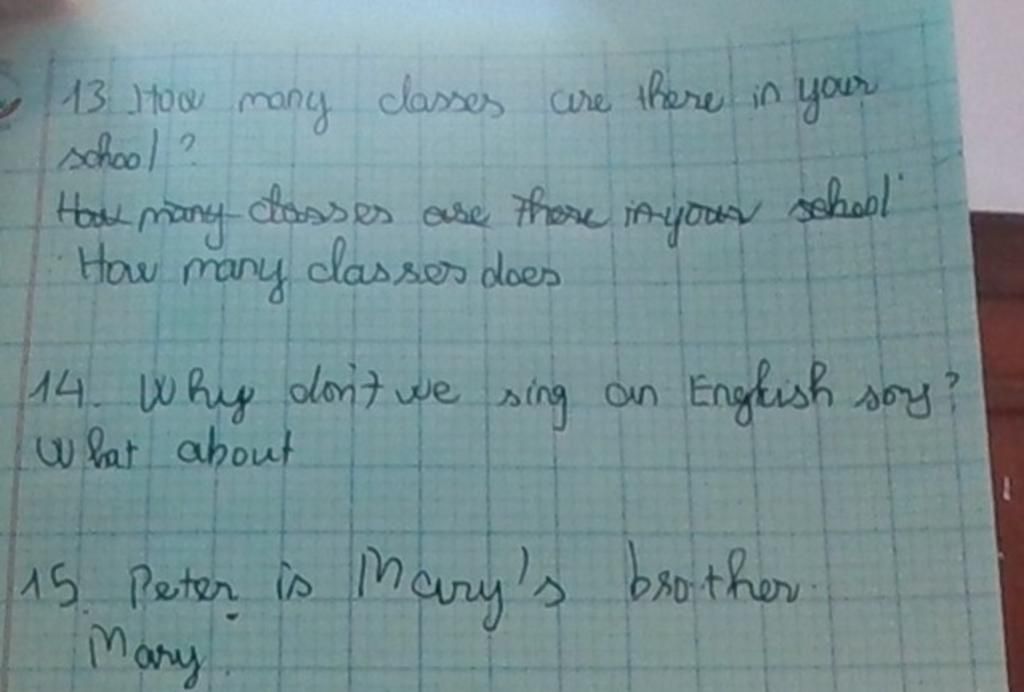 13. How many classes are there in your
school?
How many classes are there in your school
How many classes does
14. Why don't we sing an English song?
What about
15. Peter is Mary's brother.
Mary